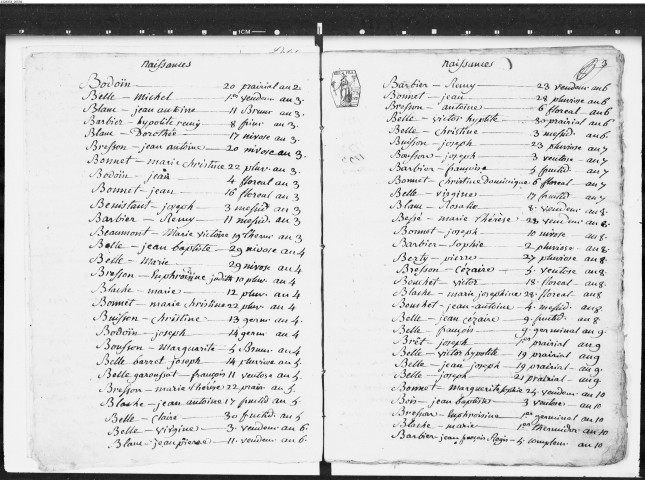 naissances
Bodoin — 20 prairial an 2.
Belle — Michel — 1er vendem. an 3.
Blanc — jean antoine — 11 Brum. an 3.
Barbier — hypolite remy — 8 frim. an 3.
Blanc — Dorothée — 17 nivose an 3.
Bresson — jean antoine — 20 nivose an 3.
Bonnet — marie christine 22 pluv. an 3.
Bodoin — jean — 4 floreal an 3.
Bonnet — jean — 16 floreal an 3.
Benistant — joseph — 3 messid. an 3.
Barbier — Remy — 11 messid. an 3.
Beaumont — Marie victoire 19 therm. an 3
Belle — jean baptiste — 29 nivose an 4
Belle — Marie — 29 nivose an 4
Bresson — Euphroisine judith 10 pluv. an 4
Blache — marie — 12 pluv. an 4
Bonnet — marie christine 22 pluv. an 4
Buisson — christine — 13 germ. an 4
Bodoin — joseph — 14 germ. an 4
Bousson — marguerite — 5 Brum. an 4
Belle barret joseph — 14 pluviose an 5
Belle garoufist — françois 11 ventose an 5
Bresson — marie Thérèse 22 prair. an 5
Blache — jean antoine 17 fructid. an 5
Belle — claire — 30 fructid. an 5
Belle — virgine — 3 vendem. an 6
Blanc — jean pierre — 11 vendem. an 6.
naissances
3
Barbier — Remy — 23 vendem. an 6
Bonnet — jean — 28 pluviose an 6
Bresson — antoine — 6 floreal an 6
Belle — victor hypolite — 30 prairial an 6
Belle — christine — 3 messid. an 6
Buisson — joseph — 23 pluviose an 7
Bousson — joseph — 3 ventose an 7
Barbier — françoise — 5 fructid. an 7
Bonnet — christine dominique 6 floreal an 7
Belle — virgine — 17 fructid. an 7
Blanc — Rosalie — 8 vendem. an 8.
Bessé — marie Thérèse — 23 vendem. an 8.
Bonnet — joseph — 10 nivose — an 8.
Barbier — Sophie — 2 pluviose — an 8.
Berty — pierre — 27 pluviose an 8.
Bresson — cézaire — 5 ventose an 8.
Bouchet — victor — 18 floreal — an 8.
Blache — marie josephine 28 floreal — an 8.
Bouchet — jean antoine — 4 messid. an 8.
Belle — jean cézaire — 9 fructid. an 8.
Belle — françois — 9 germinal an 9.
Brêt — joseph — 1er prairial an 9
Belle — victor hypolite — 19 prairial an 9
Belle — jean joseph — 19 prairial an 9.
Belle — joseph — 21 prairial an 9.
Bonnet — marguerite sophie 25 vendem. an 10
Bois — jean baptiste — 3 ventose — an 10
Bressan — Euphroisine — 1er germinal an 10
Blache — marie — 1er thermidor an 10
Barbier — jean françois Régis — 4 complem. an 10